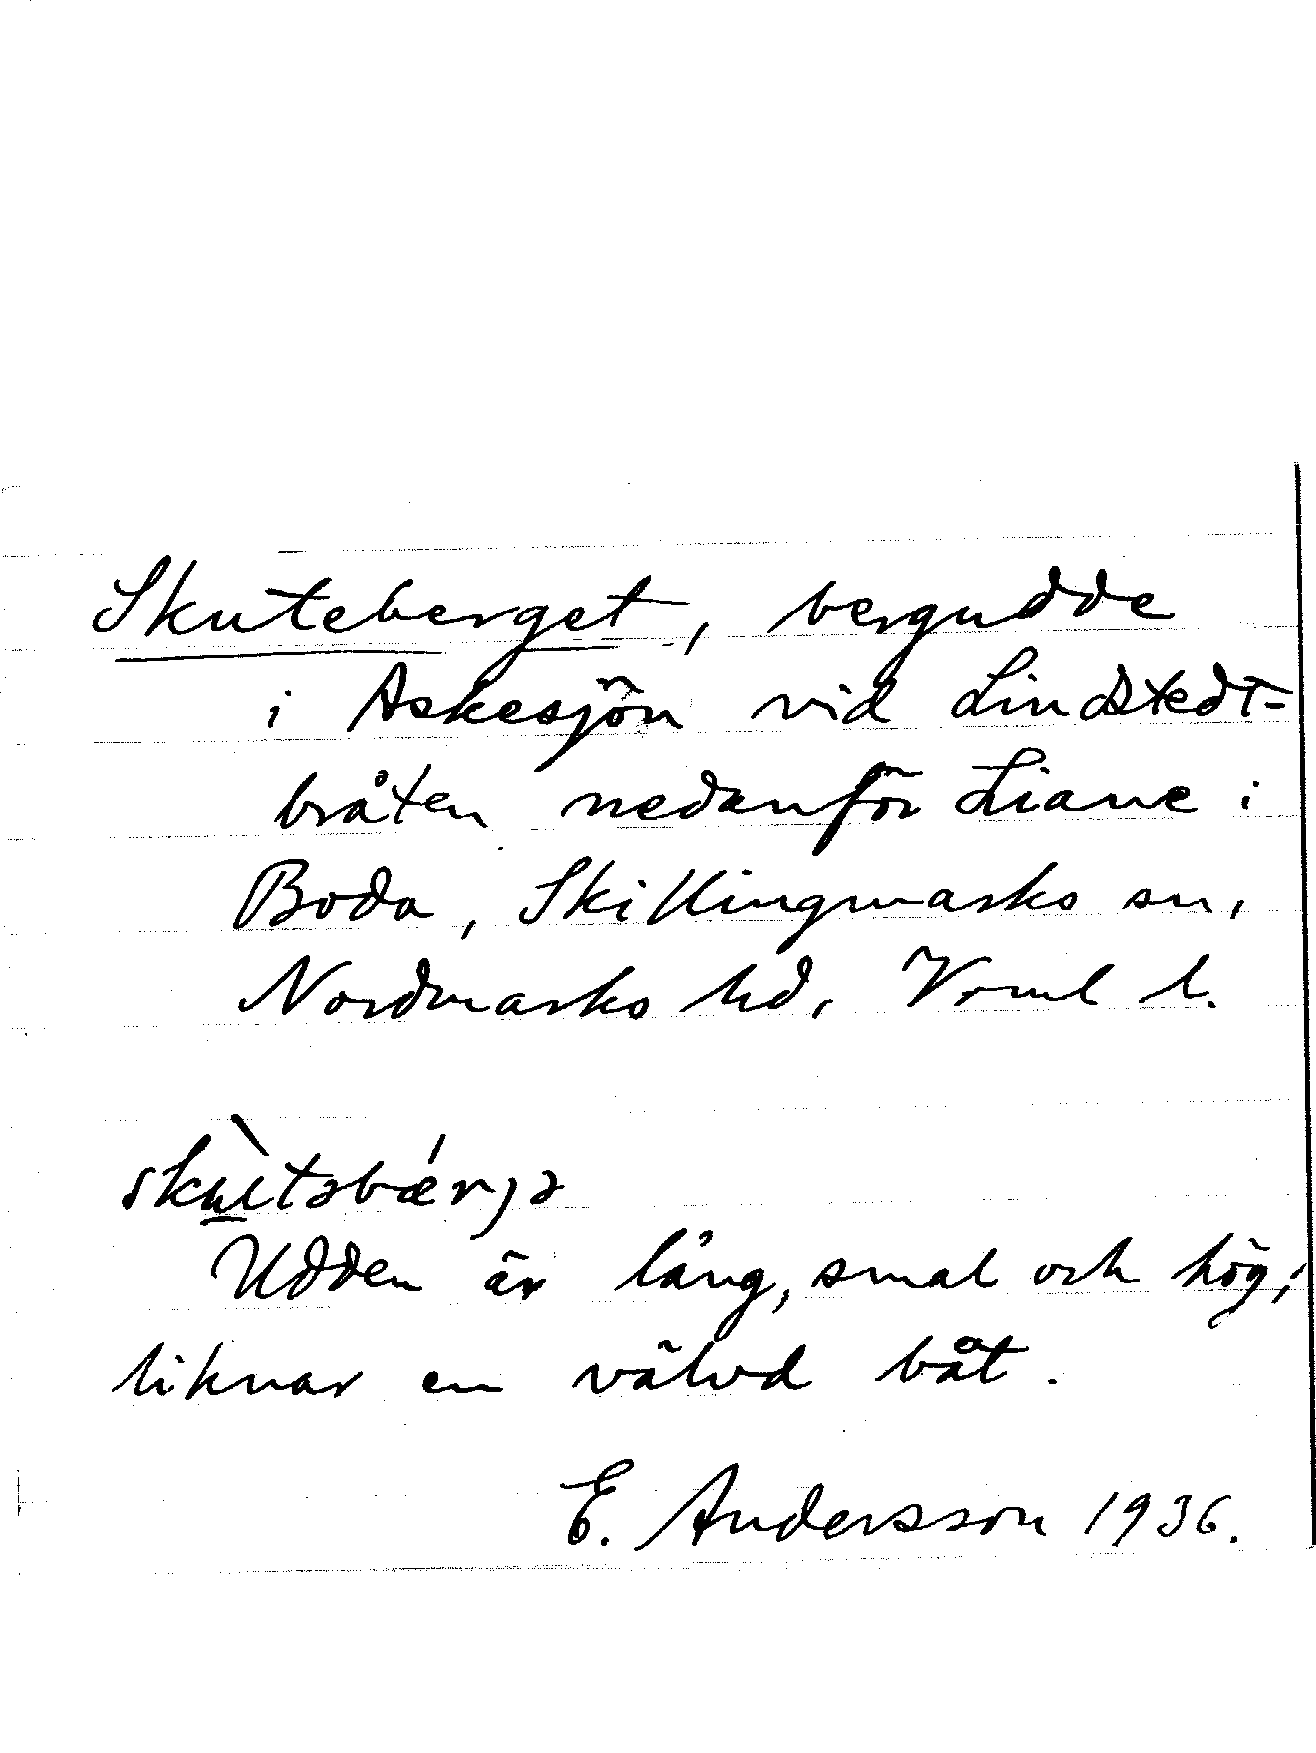 Skuteberget, bergudde
i Askesjön vid Lindstedt-
bråten nedanför Liane i
Boda, Skillingmarks sn,
Nordmarks hd, Vrml l.
skùtəbǽrjə
Udden är lång, smal och hög;
liknar en välvd båt.
E. Andersson 1936.